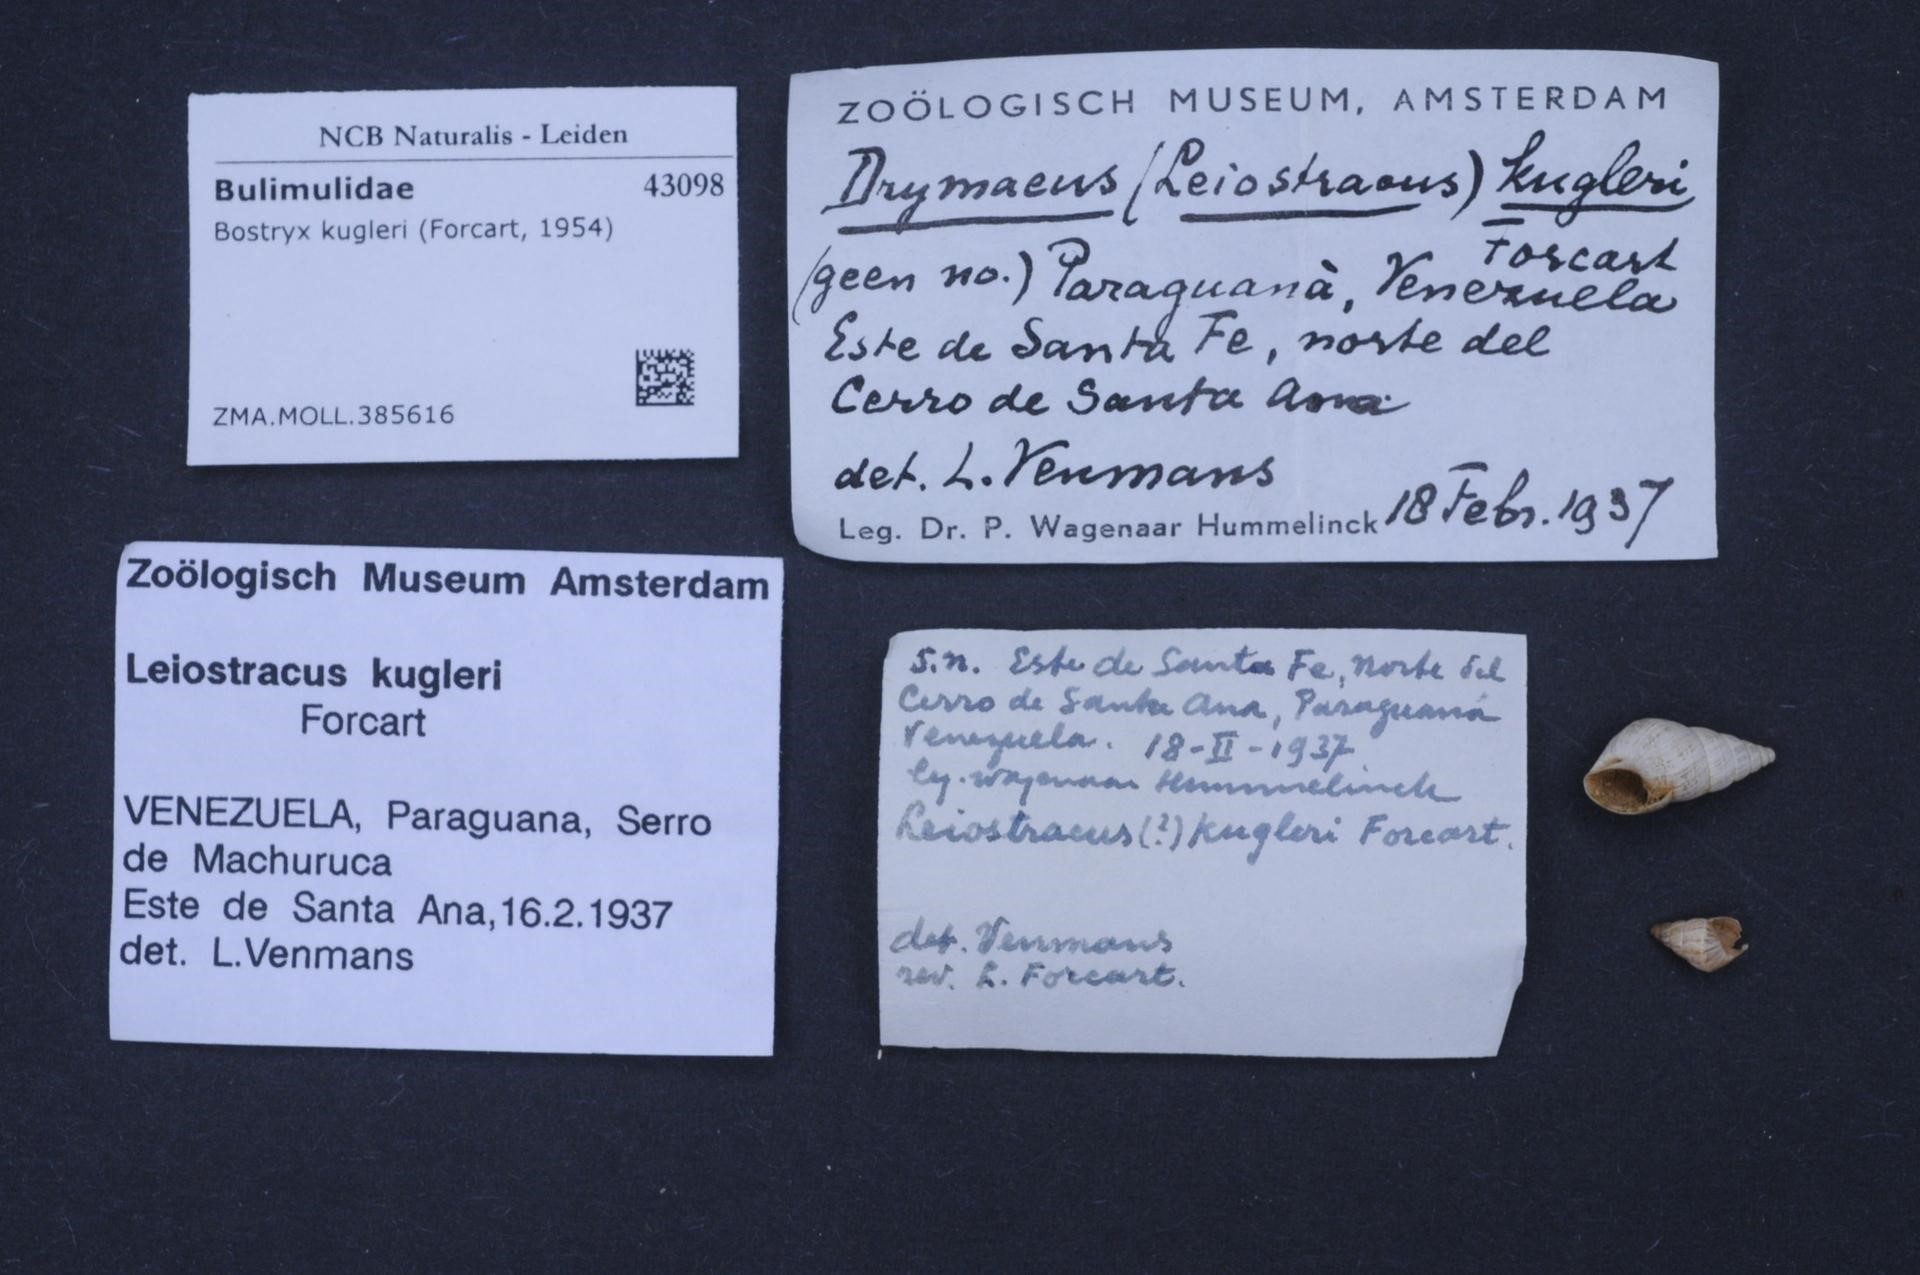 NCB Naturalis - Leiden
Bulimulidae 43098
Bostryx kugleri (Forcart, 1954)
ZMA.MOLL.385616
ZOÖLOGISCH MUSEUM, AMSTERDAM
Drymaeus (Leiostracus) kugleri
Forcart
(geen no.) Paraguanà, Venezuela
Este de Santa Fe, norte del
Cerro de Santa Ana
det. L. Venmans
Leg. Dr. P. Wagenaar Hummelinck 18 Febr. 1937
Zoölogisch Museum Amsterdam
Leiostracus kugleri
Forcart
VENEZUELA, Paraguana, Serro
de Machuruca
Este de Santa Ana,16.2.1937
det. L.Venmans
s.n. Este de Santa Fe, Norte del
Cerro de Santa Ana, Paraguaná
Venezuela. 18-II-1937
leg. Wagenaar Hummelinck
Leiostracus (?) kugleri Forcart.
det. Venmans
rev. L. Forcart.